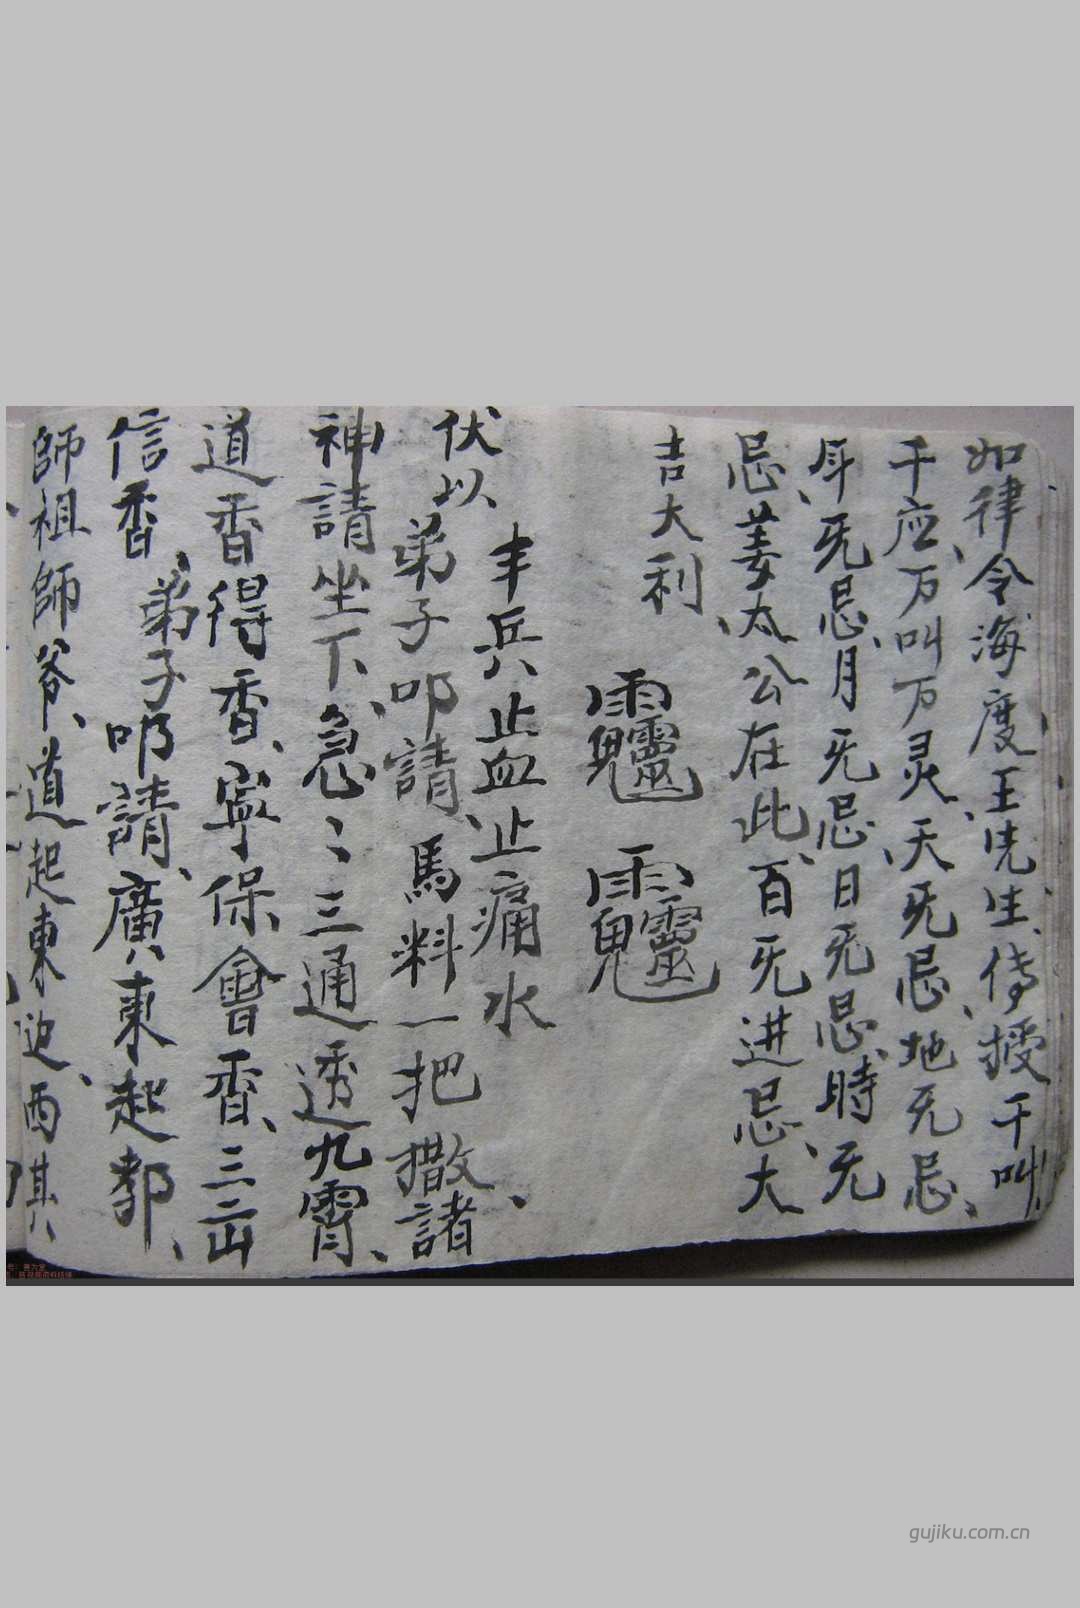 如律令海度王先生、傳授千叫
千应、万叫万灵、天旡忌、地旡忌、
年旡忌、月旡忌日旡忌、時旡
忌、姜太公在此、百旡进忌、大
吉大利
丰兵止血止痛水
伏以、弟子叩請、馬料一把撒諸
神請坐下、急〻三通透九霄、
道香得香、寧保會香、三山
信香、弟子叩請、廣東起
師祖師爷、道起東边、西其
gujiku.com.cn